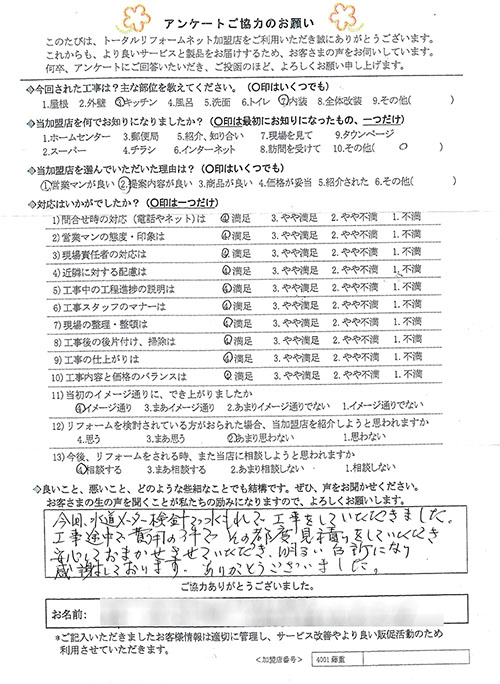 アンケートご協力のお願い
このたびは、トータルリフォームネット加盟店をご利用いただき誠にありがとうございます。
これからも、より良いサービスと製品をお届けするため、お客さまの声をお伺いしています。
何卒、アンケートにご回答いただいき、ご投函のほど、よろしくお願い申し上げます。
◆今回された工事は？主な部位を教えてください。（〇印はいくつでも）
1.屋根 2.外壁 ③キッチン 4.風呂 5.洗面 6.トイレ ⑦内装 8.全体改装 9.その他( )
◆当加盟店を何でお知りになりましたか？（〇印は最初にお知りになったもの、一つだけ）
1.ホームセンター 3.郵便局 5.紹介、知り合い 7.現場を見て 9.タウンページ
2.セールスマン 4.チラシ 6.インターネット 8.訪問を受けて 10.その他( ○ )
◆当加盟店を選んでいただいた理由は？（〇印はいくつでも）
①営業マンが良い ②提案内容が良い 3.商品が良い 4.価格が妥当 5.紹介された 6.その他( )
◆対応はいかがでしたか？（〇印は一つだけ）
1)問合せ時の対応（電話やネット）は ④満足 3.やや満足 2.やや不満 1.不満
2)営業マンの態度・印象は ④満足 3.やや満足 2.やや不満 1.不満
3)現場責任者の対応は ④満足 3.やや満足 2.やや不満 1.不満
4)近隣に対する配慮は ④満足 3.やや満足 2.やや不満 1.不満
5)工事中の工程進捗の説明は ④満足 3.やや満足 2.やや不満 1.不満
6)工事スタッフのマナーは ④満足 3.やや満足 2.やや不満 1.不満
7)現場の整理・整頓は ④満足 3.やや満足 2.やや不満 1.不満
8)工事後の後片付け、掃除は ④満足 3.やや満足 2.やや不満 1.不満
9)工事の仕上がりは ④満足 3.やや満足 2.やや不満 1.不満
10)工事内容と価格のバランスは ④満足 3.やや満足 2.やや不満 1.不満
11)当初のイメージ通りに、でき上がりましたか
④イメージ通り 3.まあイメージ通り 2.あまりイメージ通りでない 1.イメージ通りでない
12)リフォームを検討されている方がおられた場合、当加盟店を紹介しようと思われますか
4.思う 3.まあ思う ②あまり思わない 1.思わない
13)今後、リフォームをされる時、また当店に相談しようと思われますか
④相談する 3.まあ相談する 2.あまり相談しない 1.相談しない
◆良いこと、悪いこと、どのような些細なことでも結構です。ぜひ、声をお聞かせください。
お客さまの生の声を聞くことが私たちの励みになりますので、よろしくお願いします。
今回、水道メーター検針で水もれで工事をしていただきました。
工事途中で費用の件で その都度見積りをしていただき
安心しておまかせさせていただき、明るい台所になり
感謝しております。ありがとうございました。
ご協力ありがとうございました。
お名前:
*ご記入いただきましたお客様情報は適切に管理し、サービス改善やより良い販促活動のため
利用させていただきます。
＜加盟店番号＞ 4001 藤重